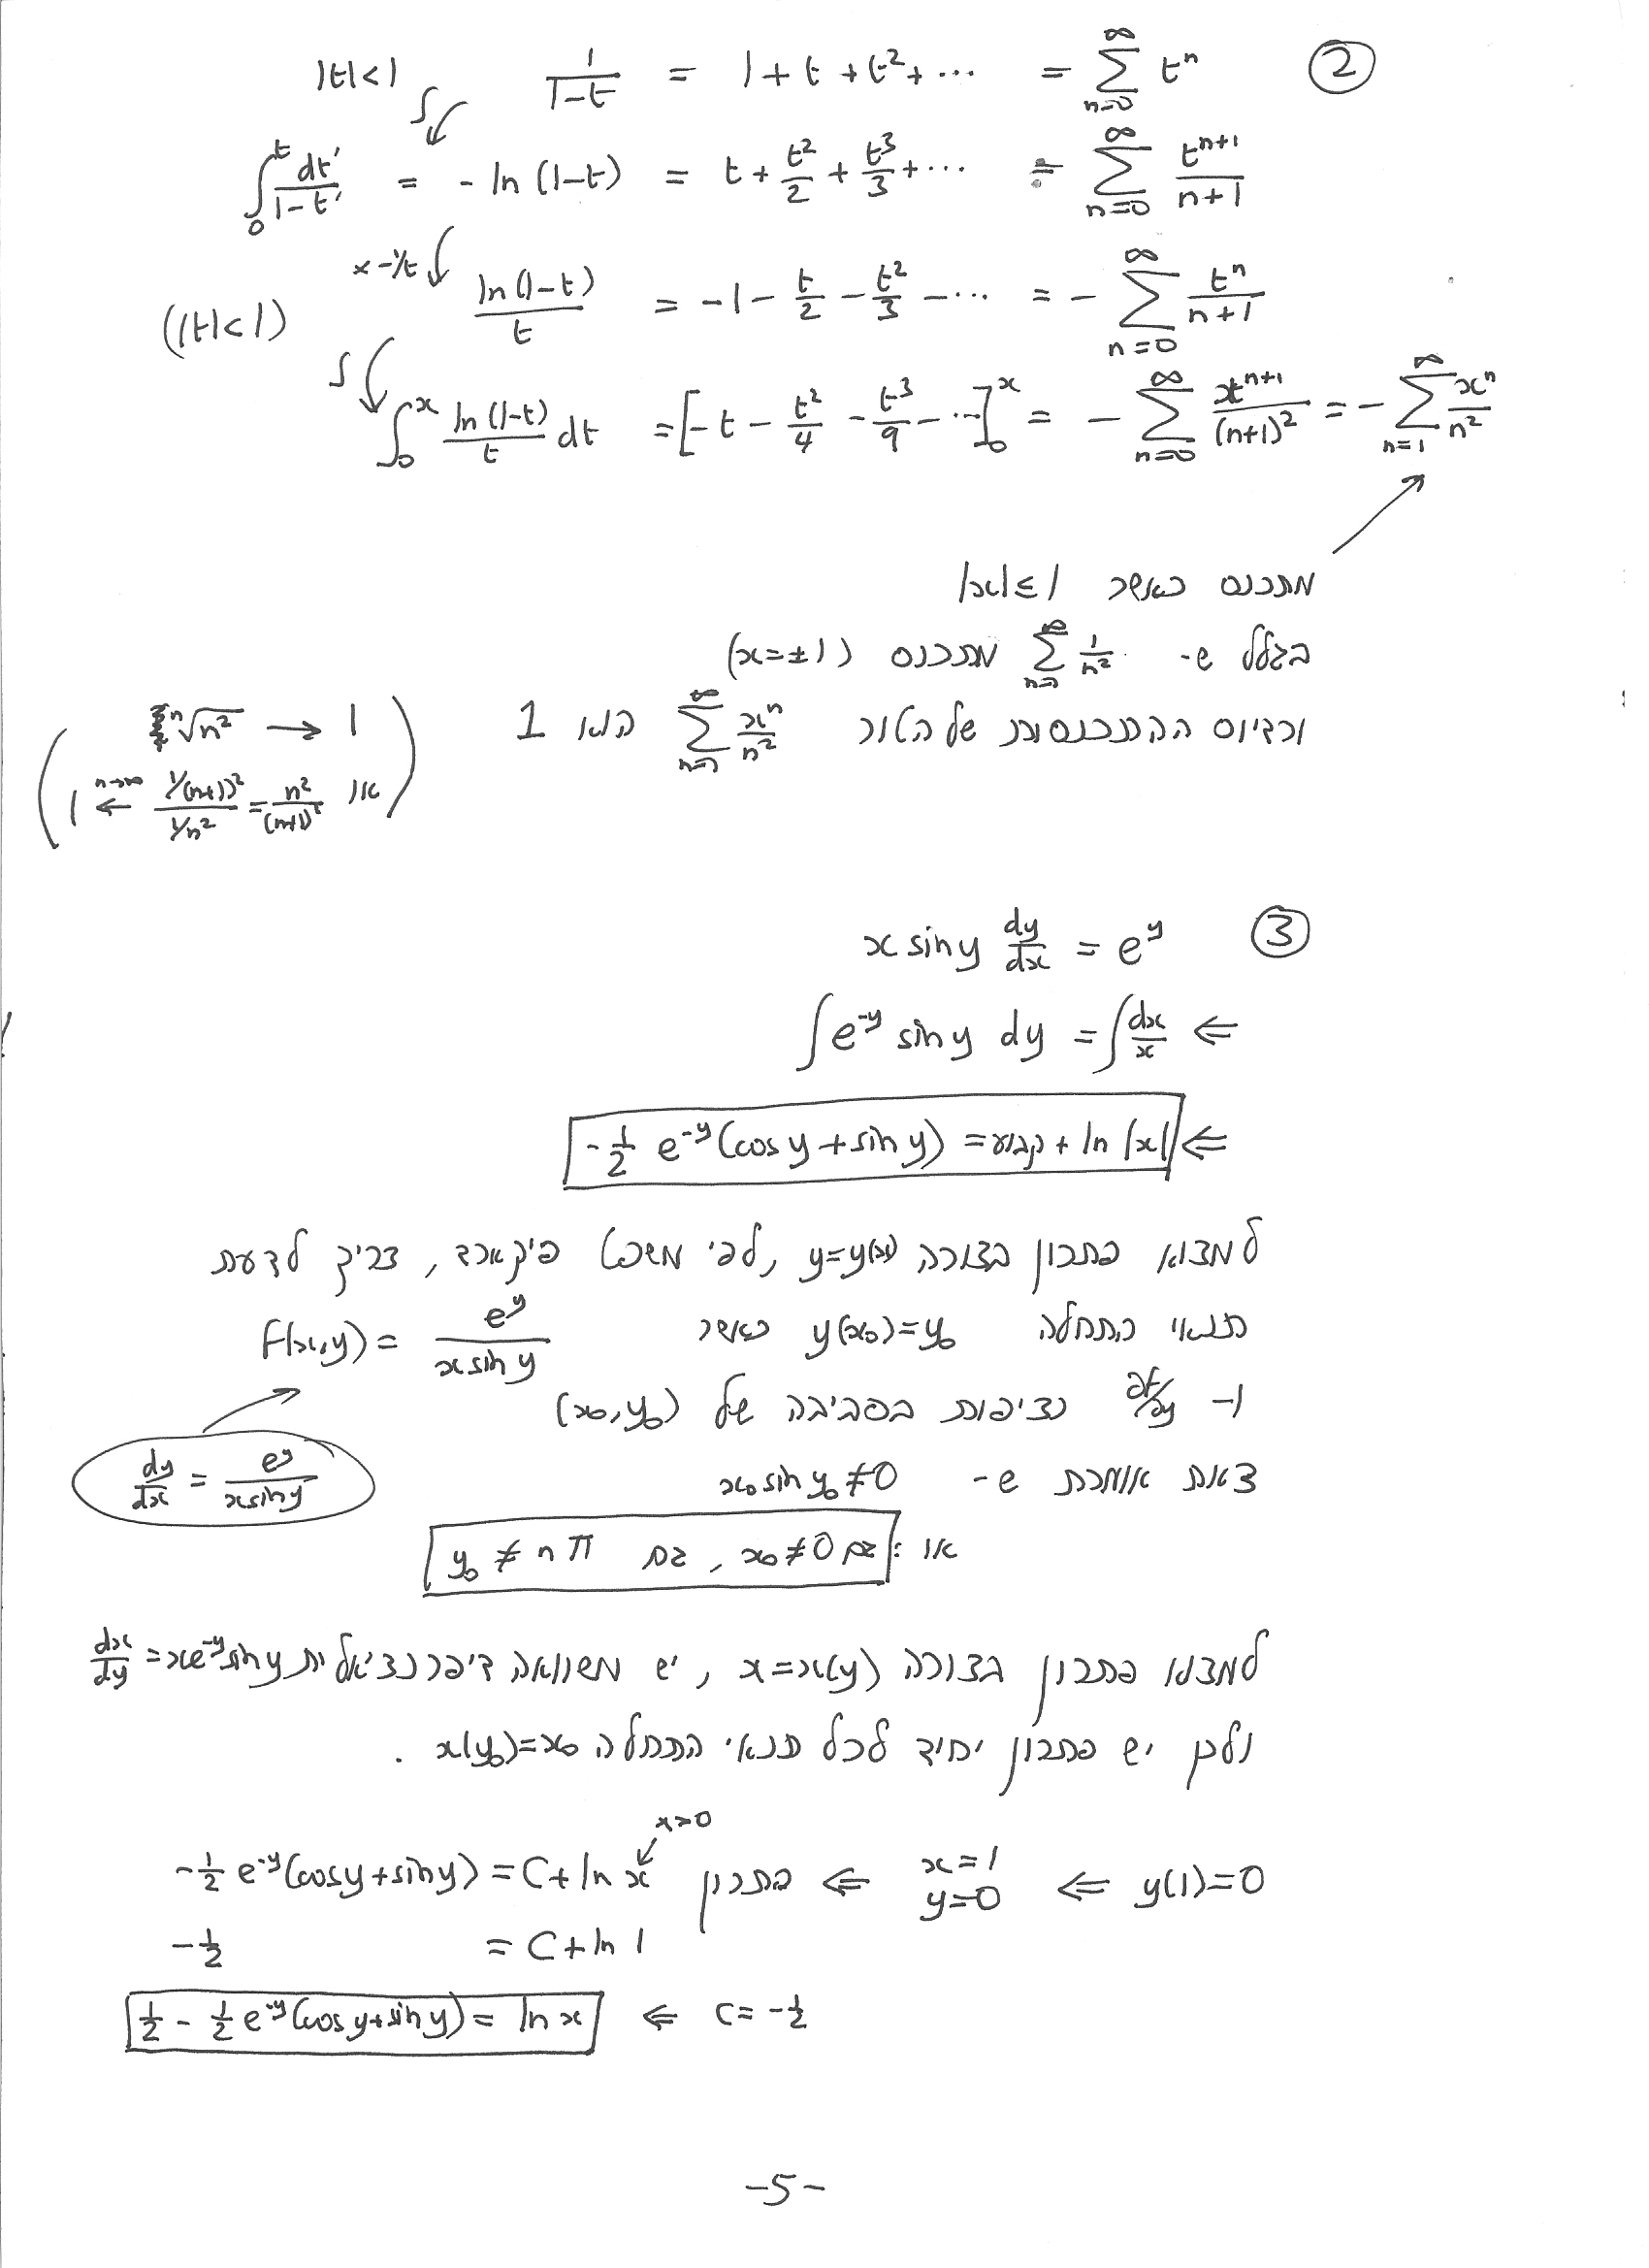 ② 1/(1-t) = 1 + t + t² + ... = ∑_{n=0}^{∞} tⁿ |t|<1
∫
∫₀ᵗ dt'/(1-t') = -ln(1-t) = t + t²/2 + t³/3 + ... = ∑_{n=0}^{∞} t^{n+1}/(n+1)
x -1/t
ln(1-t)/t = -1 - t/2 - t²/3 - ... = -∑_{n=0}^{∞} tⁿ/(n+1) (|t|<1)
∫
∫₀ˣ ln(1-t)/t dt = [-t - t²/4 - t³/9 - ...]₀ˣ = -∑_{n=0}^{∞} x^{n+1}/(n+1)² = -∑_{n=1}^{∞} xⁿ/n²
מתכנס כאשר |x|≤1
בגלל ש- ∑_{n=1}^{∞} 1/n² מתכנס (x=±1)
ורדיוס ההתכנסות של הטור ∑_{n=1}^{∞} xⁿ/n² הוא 1
(ⁿ√n² → 1
או (1/(n+1)²)/(1/n²) = n²/(n+1)² → 1 n→∞)
③ x sin y dy/dx = e^y
⇐ ∫ e^{-y} sin y dy = ∫ dx/x
⇐ -½ e^{-y}(cos y + sin y) = קבוע + ln |x|
למצוא פתרון בצורה y=y(x), לפי משפט פיקארד, צריך לדעת
תנאי התחלה y(x₀)=y₀ כאשר f(x,y) = e^y/(x sin y)
ו- ∂f/∂y רציפות בסביבה של (x₀,y₀)
dy/dx = e^y/(x sin y)
זאת אומרת ש- x₀ sin y₀ ≠ 0
או: גם x₀≠0, גם y₀ ≠ nπ
למצוא פתרון בצורה x=x(y), יש משוואה דיפרנציאלית dx/dy = xe^{-y} sin y
ולכן יש פתרון יחיד לכל תנאי התחלה x(y₀)=x₀.
x>0
y(1)=0 ⇐ x=1 y=0 ⇐ פתרון -½ e^{-y}(cos y + sin y) = C + ln x
-½ = C + ln 1
C = -½ ⇐ ½ - ½ e^{-y}(cos y + sin y) = ln x
-5-